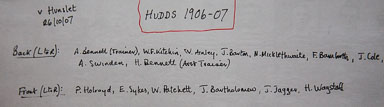 v Hunslet
26/10/07
HUDDS 1906-07
Back (L to R): A. Bennett (Trainer), W.F. Kitchin, W. Ainley, J. Bartin, N. Micklethwaite, F. Bamforth, J. Cole,
A. Swinden, H. Bennett (Asst Trainer)
Front (L to R): P. Holroyd, E. Sykes, W. Patchett, J. Bartholomew, J. Jagger, H. Wagstaff